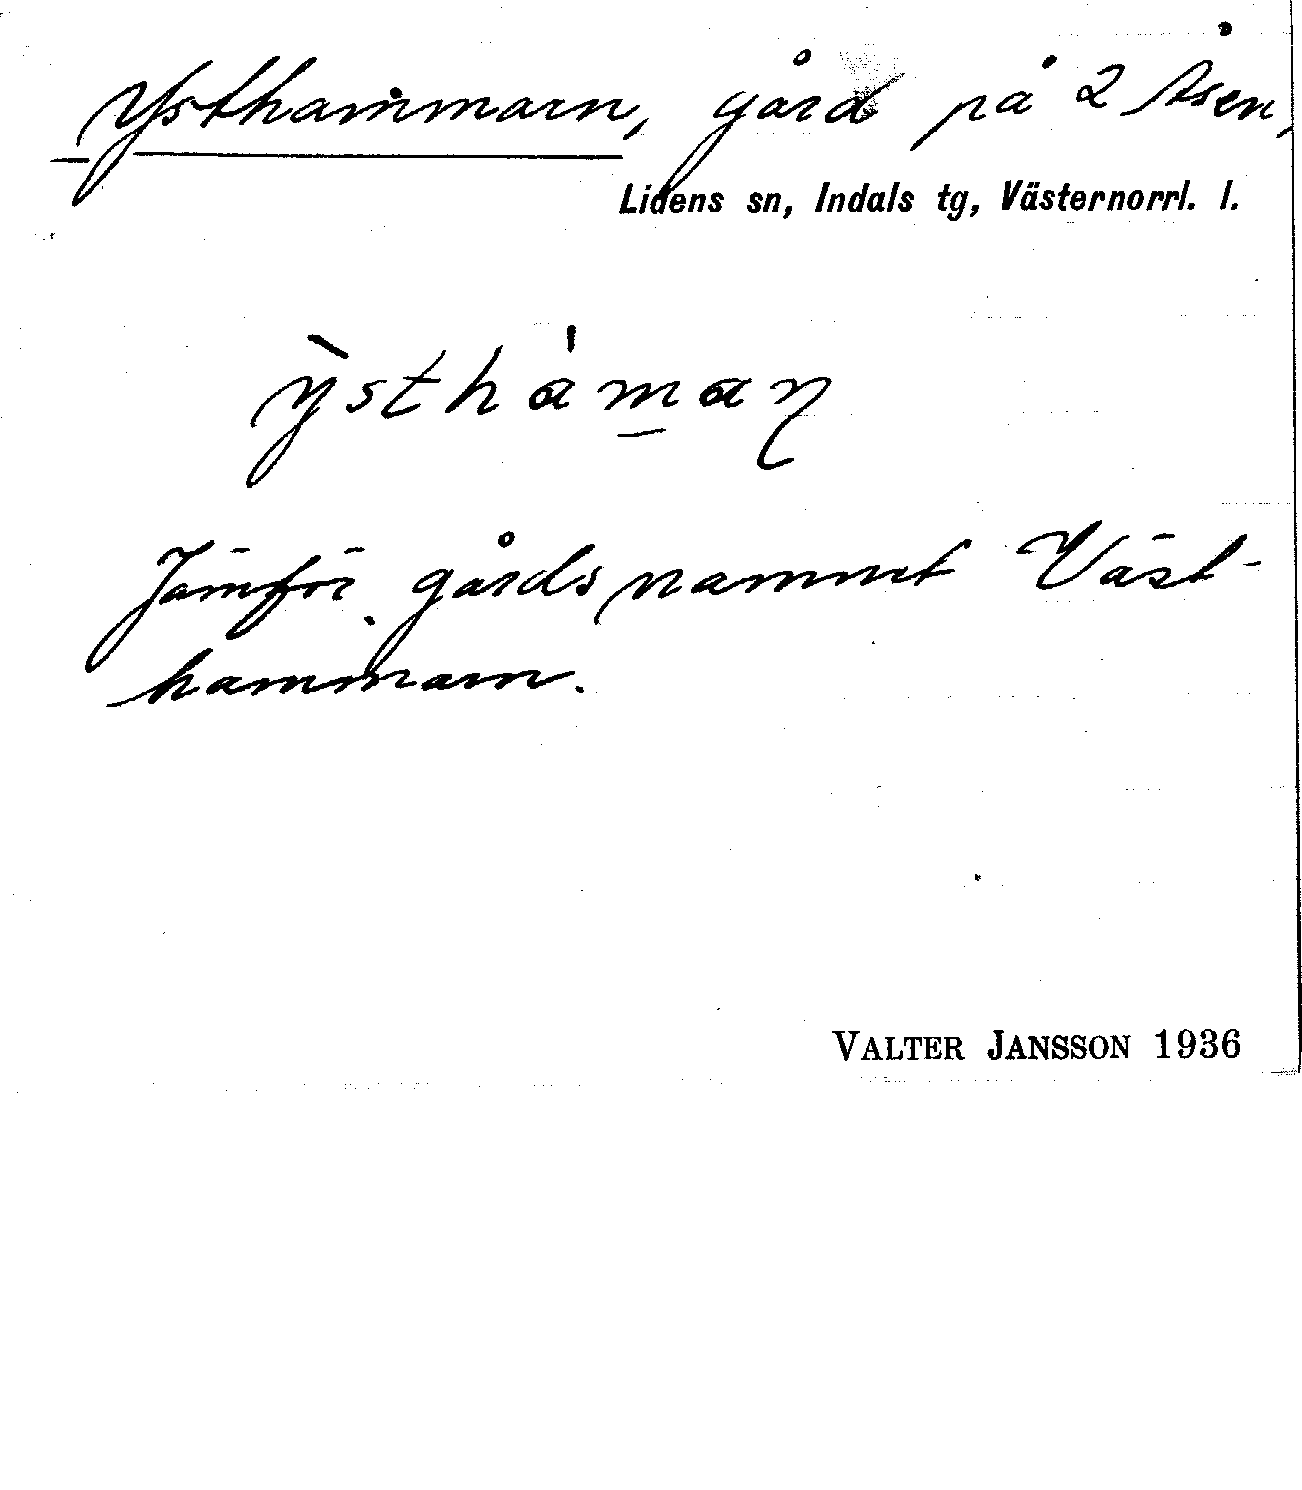 Ysthammarn, gård på 2 Åsen,
Lidens sn, Indals tg, Västernorrl. l.
ỳsthámaɳ
Jämför gårdsnamnet Väst-
hammarn.
VALTER JANSSON 1936